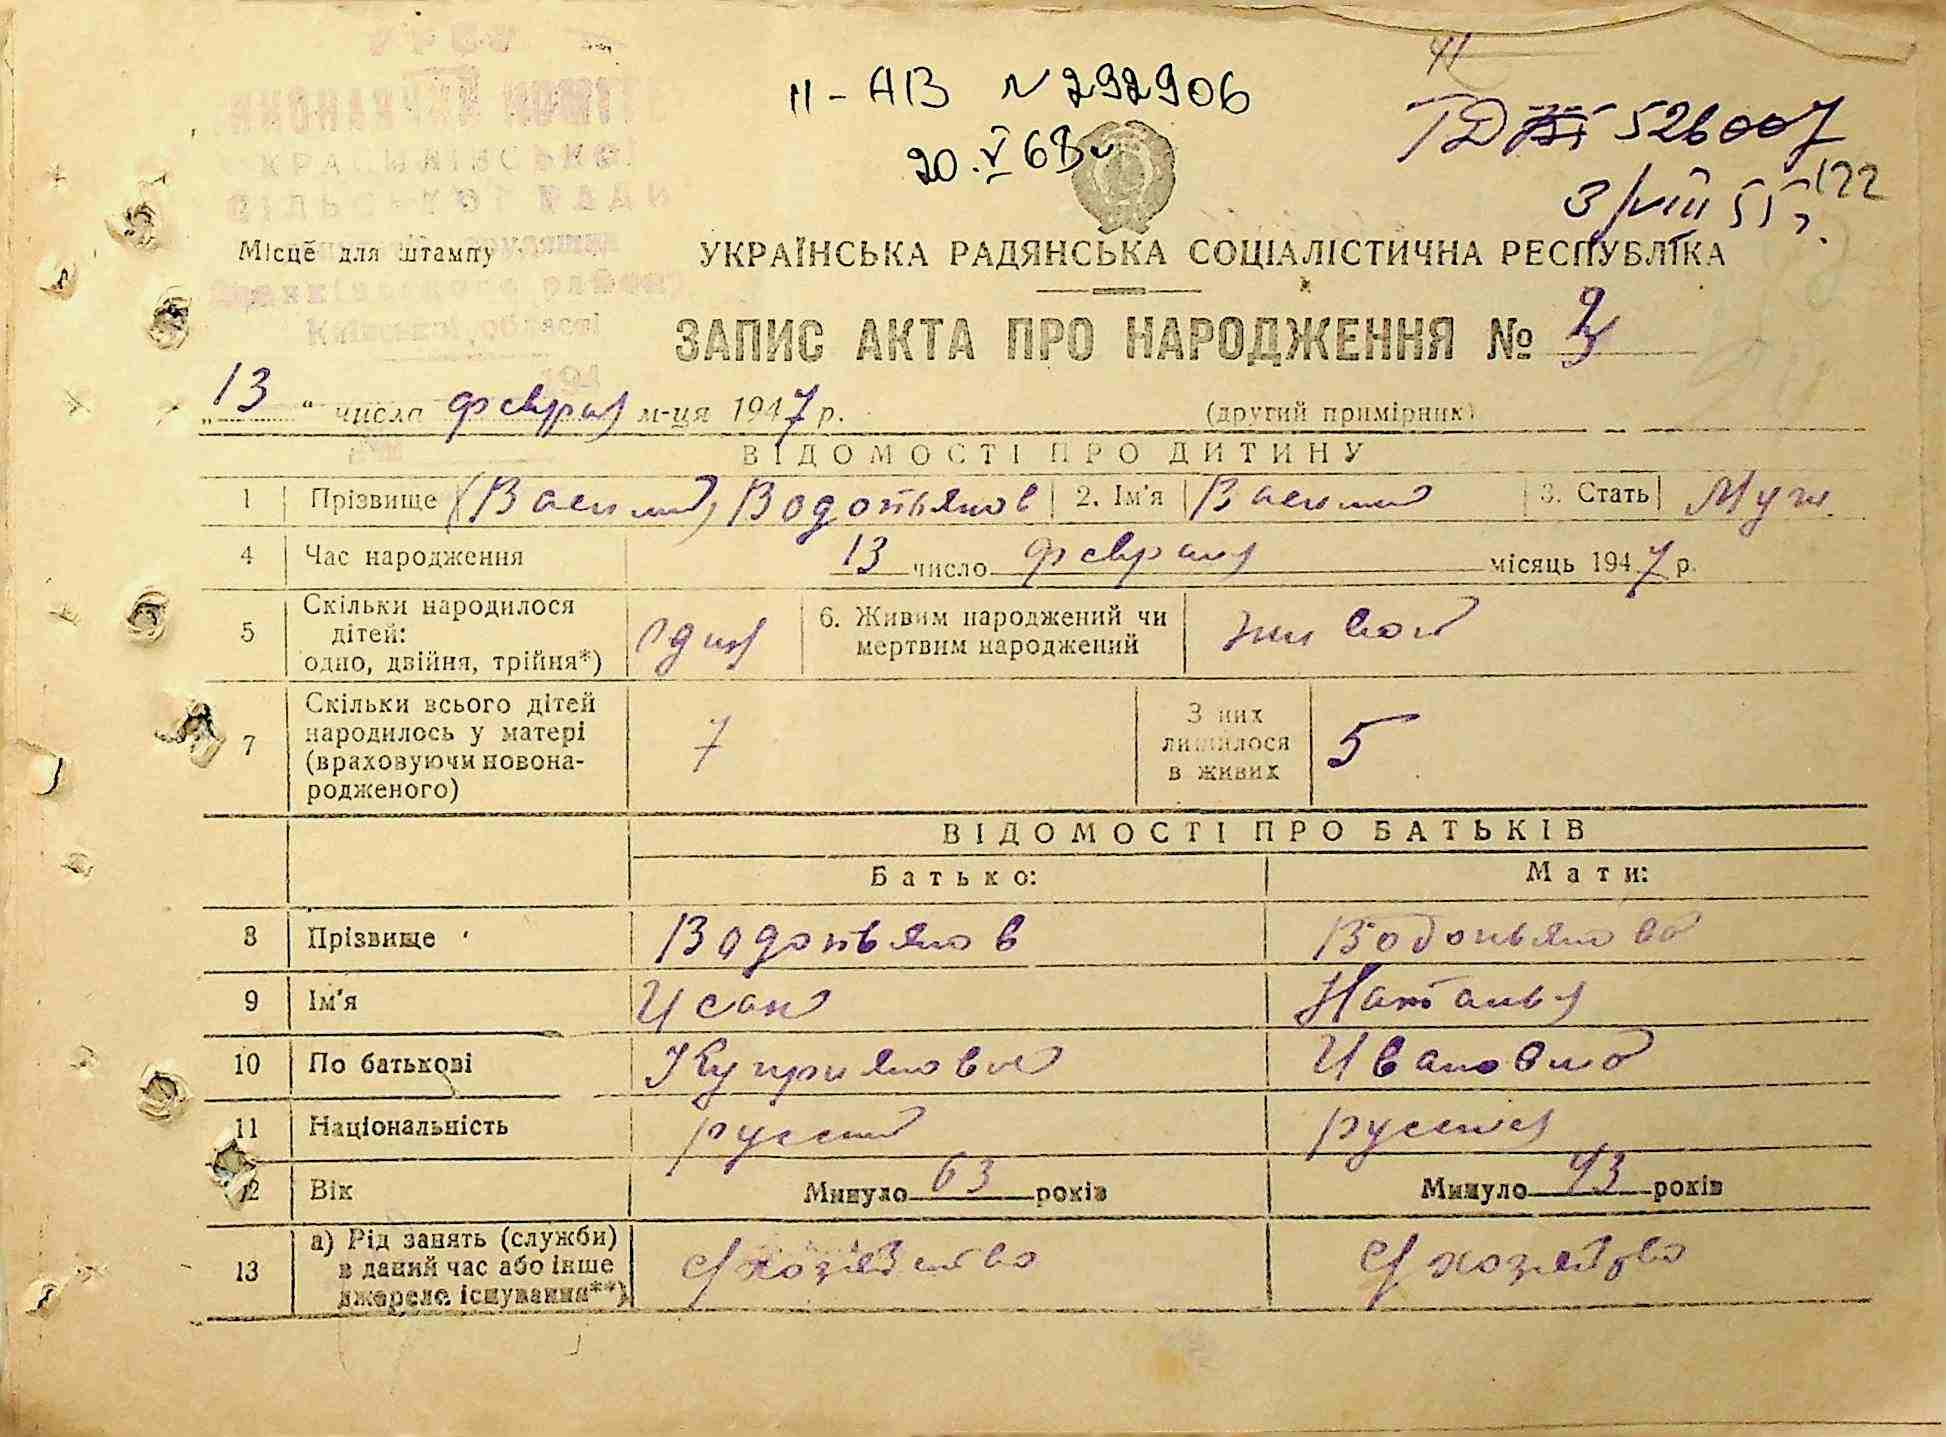 УРСР
КРАСИЛІВСЬКОЇ
СІЛЬСЬКОЇ РАДИ
Київської області
194
II-АВ N 292906
20.V 68г
41
ТД 526007
3/VIII 55г.
122
Місце для штампу
УКРАЇНСЬКА РАДЯНСЬКА СОЦІАЛІСТИЧНА РЕСПУБЛІКА
ЗАПИС АКТА ПРО НАРОДЖЕННЯ №
„13“ числа февраля м-ця 1947 р. (другий примірник)
ВІДОМОСТІ ПРО ДИТИНУ
1 Прізвище (Василий) Водопьянов 2. Ім'я Василий 3. Стать Муж.
4 Час народження 13 число февраля місяць 1947 р.
5 Скільки народилося дітей: одно, двійня, трійня*) один 6. Живим народжений чи мертвим народжений живой
7 Скільки всього дітей народилось у матері (враховуючи новонародженого) 7 З них лишилося в живих 5
ВІДОМОСТІ ПРО БАТЬКІВ
Батько: Мати:
8 Прізвище Водопьянов Водопьянова
9 Ім'я Исай Наталья
10 По батькові Куприянович Ивановна
11 Національність русский русская
12 Вік Минуло 63 років Минуло 43 років
13 а) Рід занять (служби) в даний час або інше джерело існування**) с/хозяйство с/хозяйство